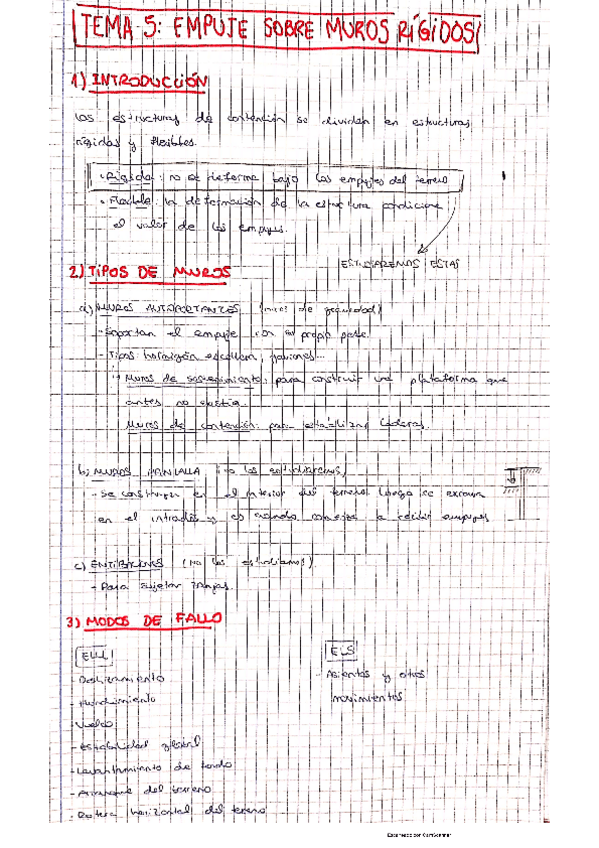 TEMA 5: EMPUJE SOBRE MUROS RÍGIDOS
1) INTRODUCCIÓN
Las estructuras de contención se dividen en estructuras
rígidas y flexibles.
· Rígida: no se deforma bajo los empujes del terreno
· Flexible: la deformación de la estructura condiciona
el valor de los empujes.
ESTUDIAREMOS ESTAS
2) TIPOS DE MUROS
a) MUROS AUTOPORTANTES (muros de gravedad)
- Soportan el empuje con su propio peso.
- Tipos: hormigón, escollera, gaviones...
Muros de sostenimiento: para construir una plataforma que
antes no existía.
Muros de contención: para estabilizar laderas.
b) MUROS PANTALLA (no los estudiaremos)
- Se construyen en el interior del terreno. Luego se excava
en el intradós y es cuando comienza a recibir empujes
c) ENTIBACIONES (No las estudiamos)
- Para sujetar zanjas.
3) MODOS DE FALLO
ELU
- Deslizamiento
- Hundimiento
- Vuelco
- Estabilidad global
- Levantamiento de fondo
- Arranque del terreno
- Rotura horizontal del terreno
ELS
- Asientos y otros
movimientos
Escaneado con CamScanner